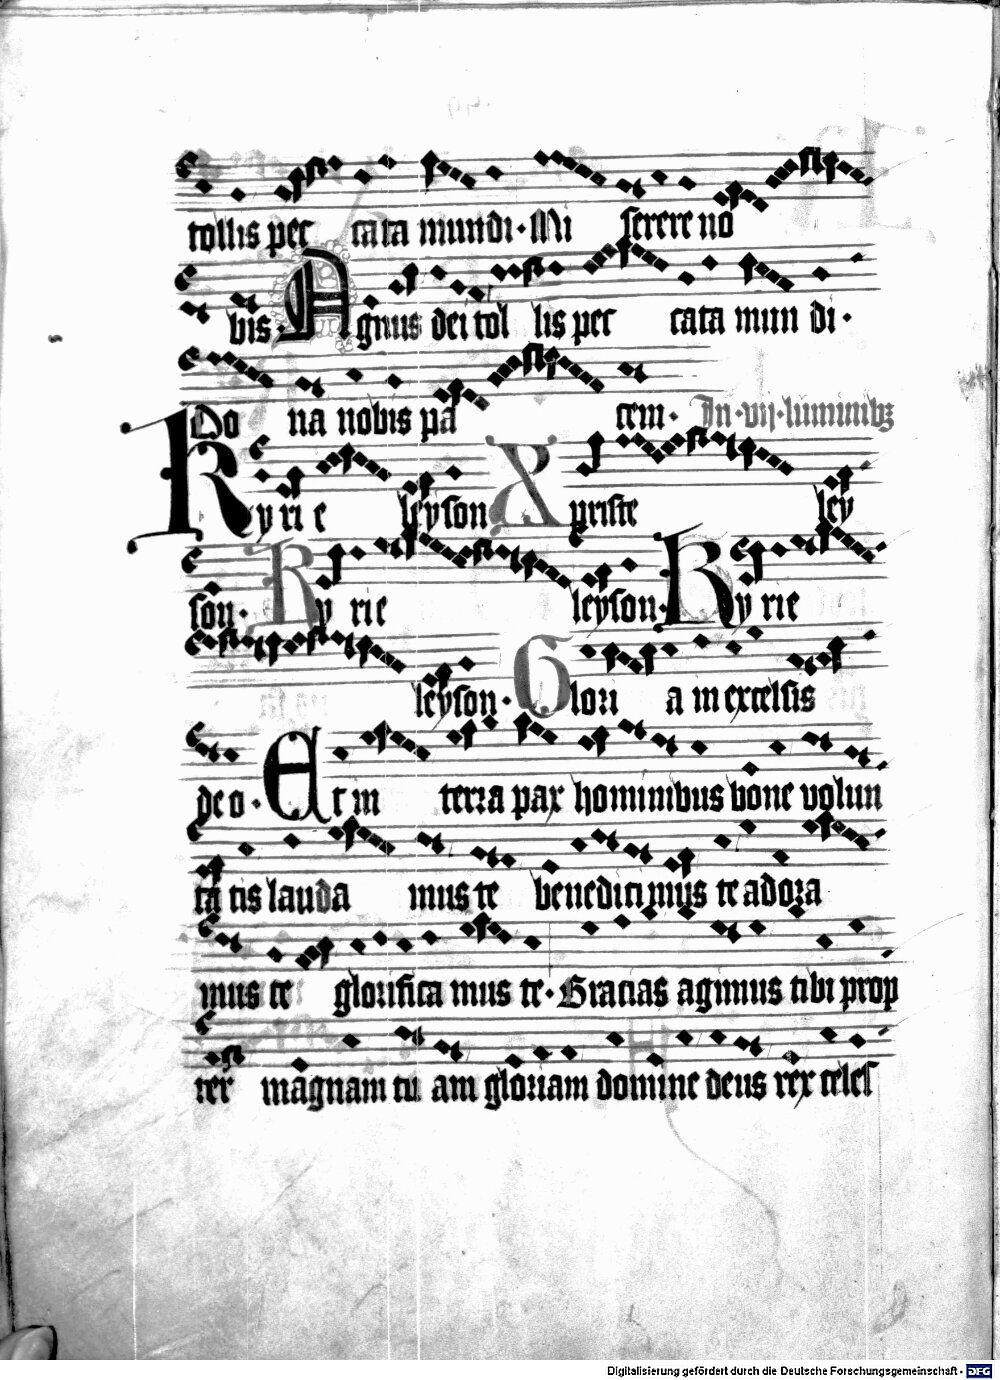 tollis pec cata mundi · Mi serere no
bis · Agnus dei tol lis pec cata mun di ·
Do na nobis pa cem · In · vij · luminibꝫ
Kyri e leyson Xpriste ley
son · Ky rie leyson · Ky rie
leyson · Glori a in excelsis
deo · Et in terra pax hominibus bone volun
ta tis lauda mus te benedicimus te adora
mus te glorifica mus te · Gracias agimus tibi prop
ter magnam tu am gloriam domine deus rex celes
Digitalisierung gefördert durch die Deutsche Forschungsgemeinschaft - DFG